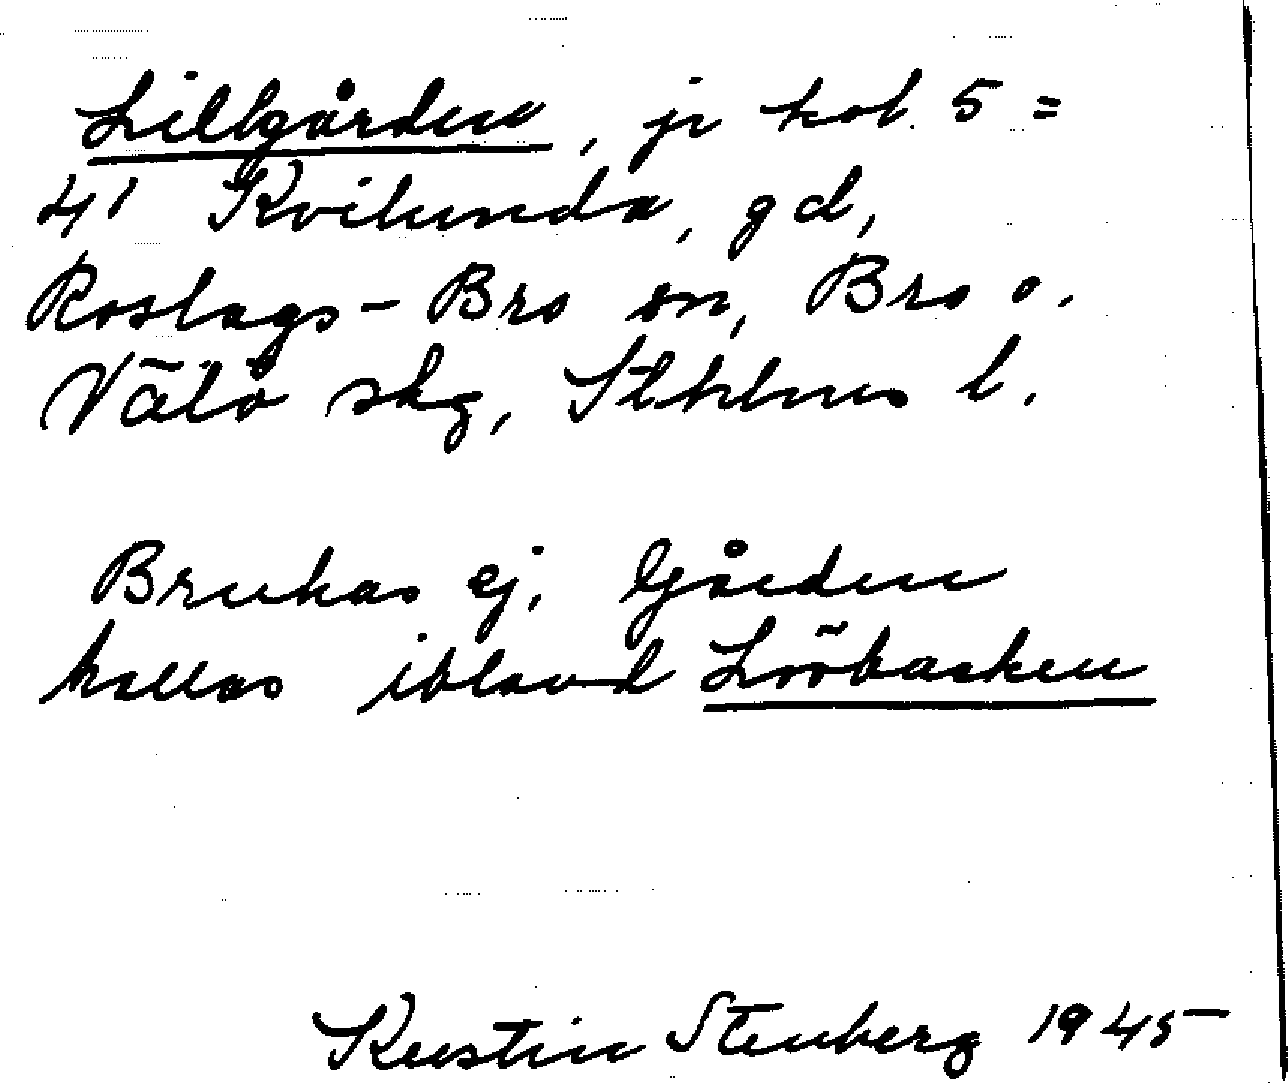 Lillgården, jr kol. 5 =
4¹ Kvilunda, gd,
Roslags-Bro sn, Bro o.
Vätö skg, Sthlms l.
Brukas ej. Gården
kallas ibland Lövbacken
Kerstin Stenberg 1945